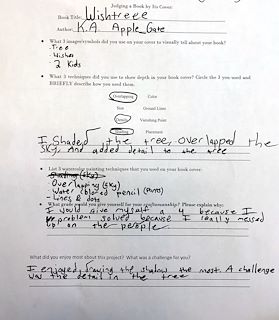 Judging a Book by Its Cover
Book Title: Wishtreee
Author: K.A. Apple Gate
• What 3 images/symbols did you use on your cover to visually tell about your book?
- Tree
- Wishes
- 2 Kids
• What 3 techniques did you use to show depth in your book cover? Circle the 3 you used and
BRIEFLY describe how you used them.
Overlapping Color
Size Ground Lines
Detail Vanishing Point
Shading Placement
I Shaded the tree, overlapped the
SKY, And added detail to the tree
• List 3 watercolor painting techniques that you used on your book cover.
- (Sky)
- Overlapping (sky)
- Water colored pencil
- Lines & dots
• What grade would you give yourself for your craftsmanship? Please explain why:
I would give myself a 4 because I
problem solved because I really messed
up on the people
What did you enjoy most about this project? What was a challenge for you?
I enjoyed drawing the shadow the most. A challenge
was the detail in the tree